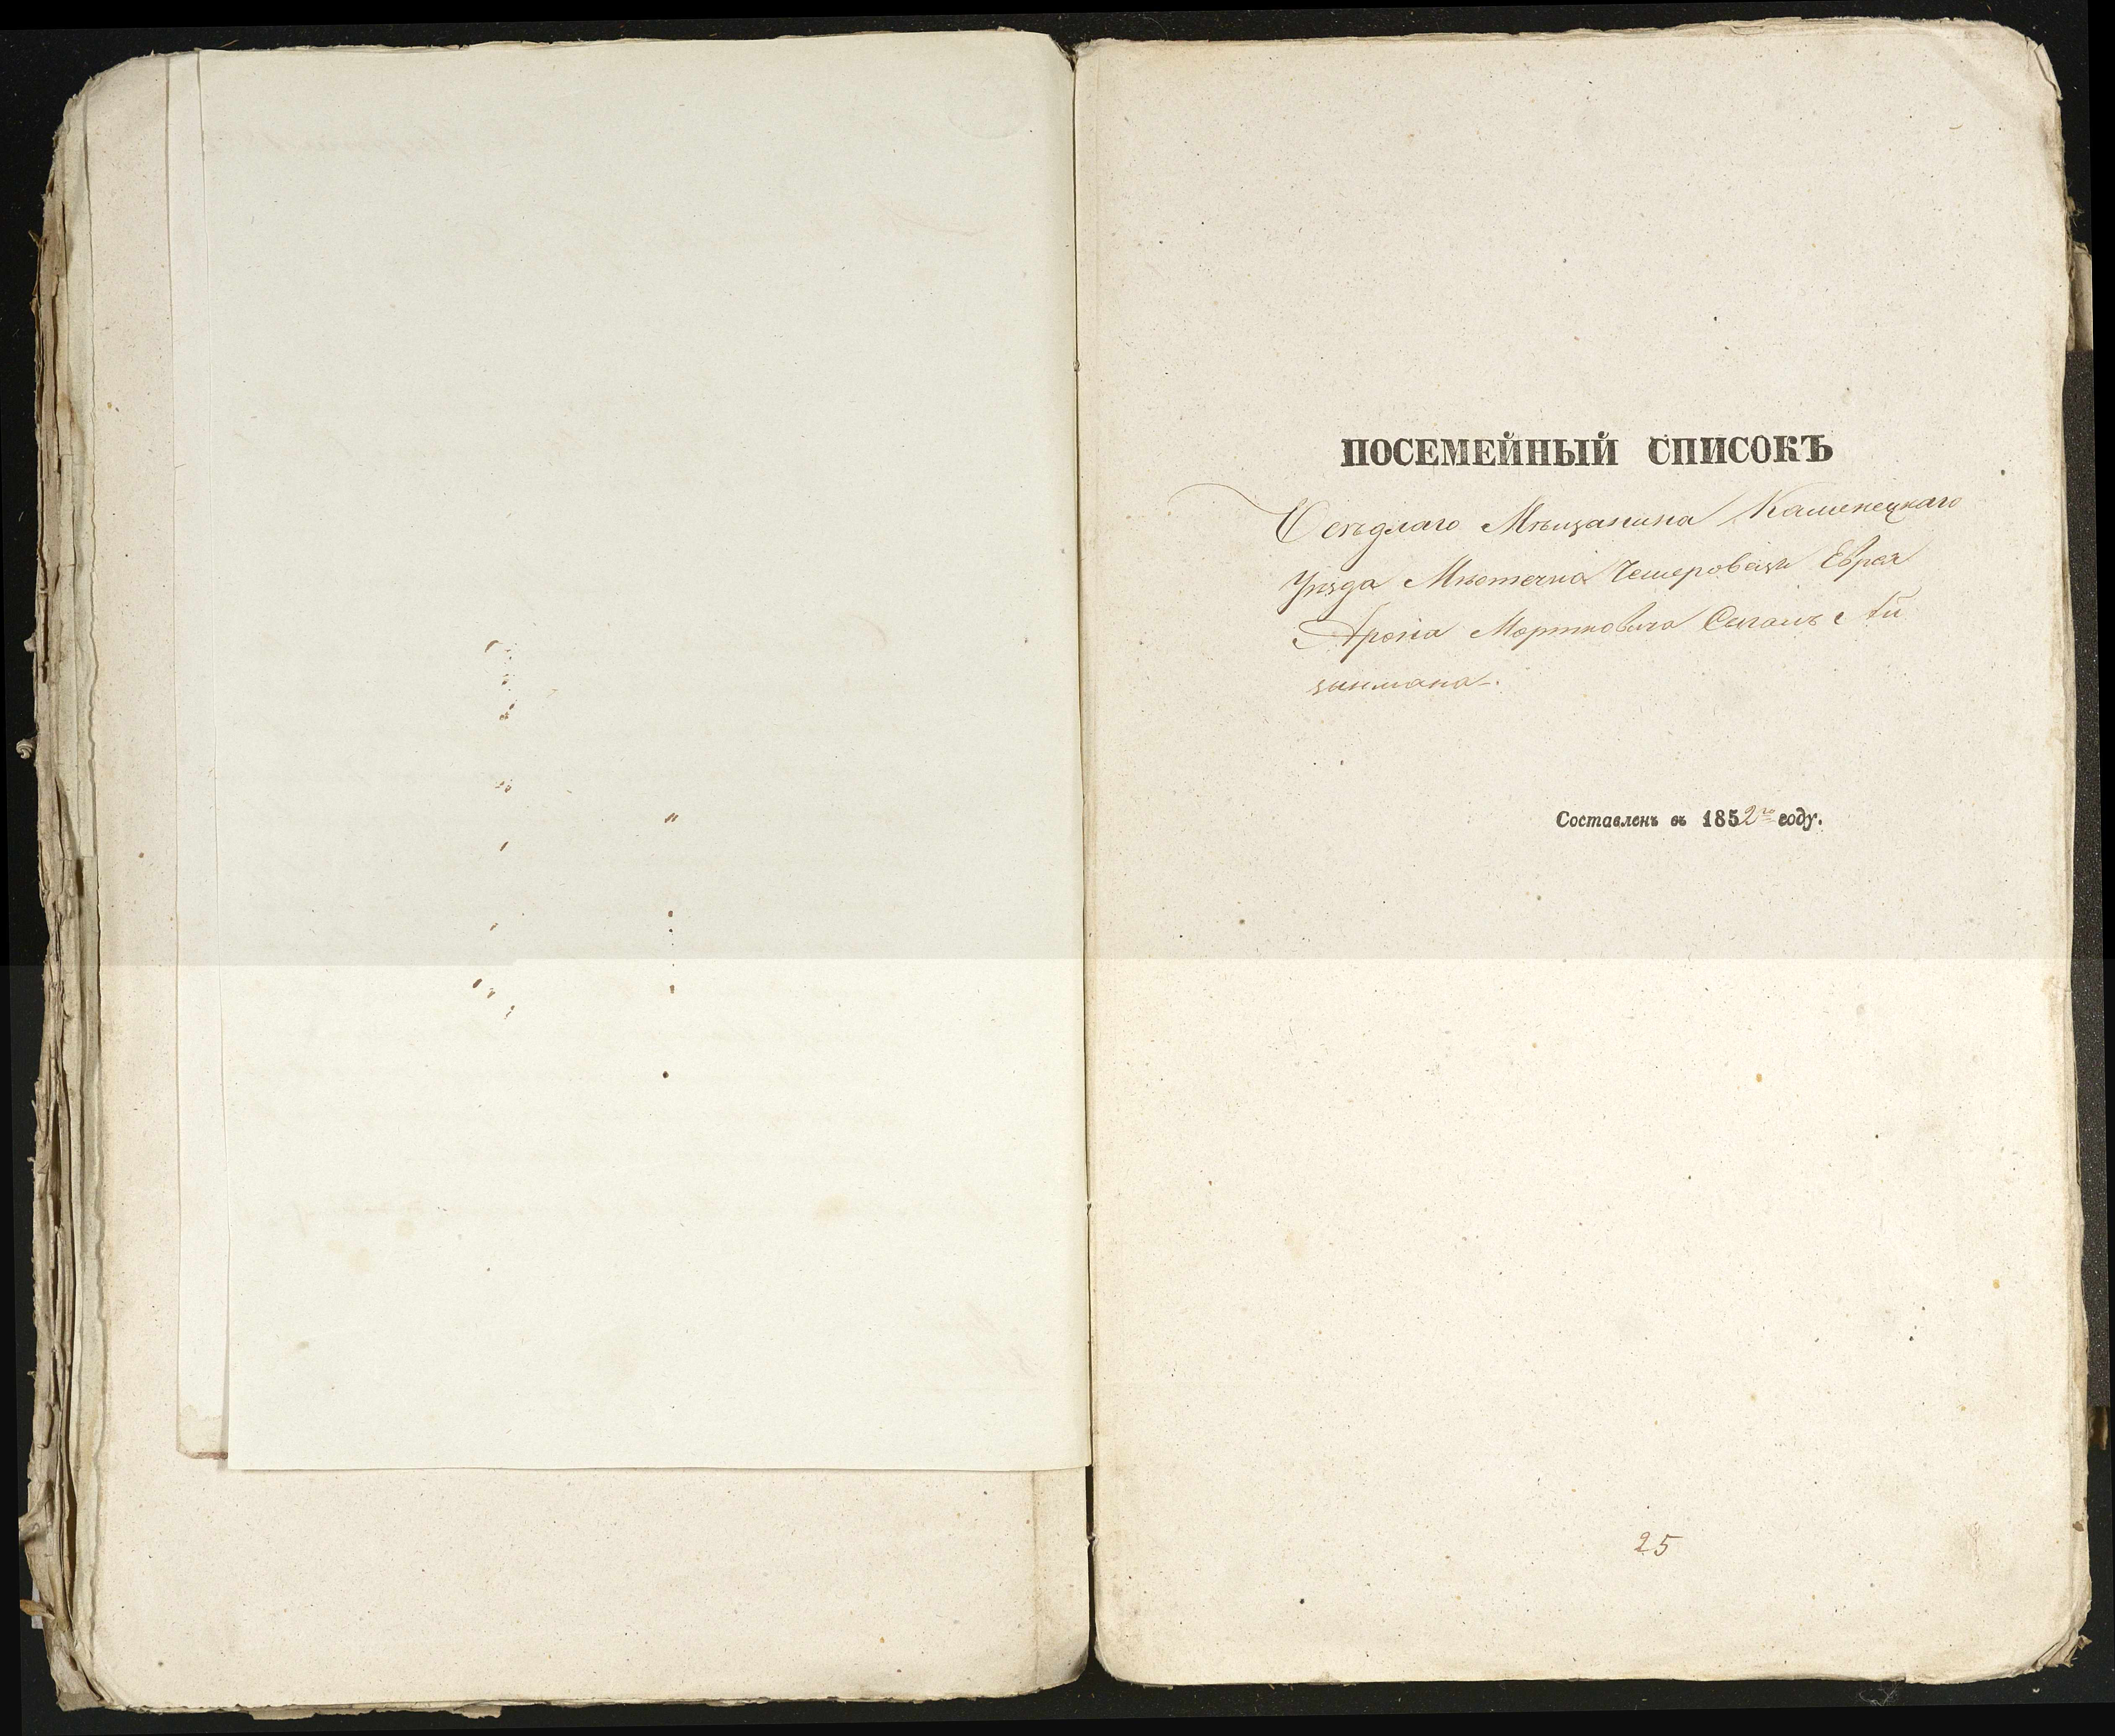 ПОСЕМЕЙНЫЙ СПИСОКЪ
Осѣдлаго Мѣщанина Каменецкаго
Уѣзда Мѣстечка Чемеровецъ Еврея
Арона Мортковича Сыгаль Ай
зынмана.
Составленъ въ 1852го году.
25